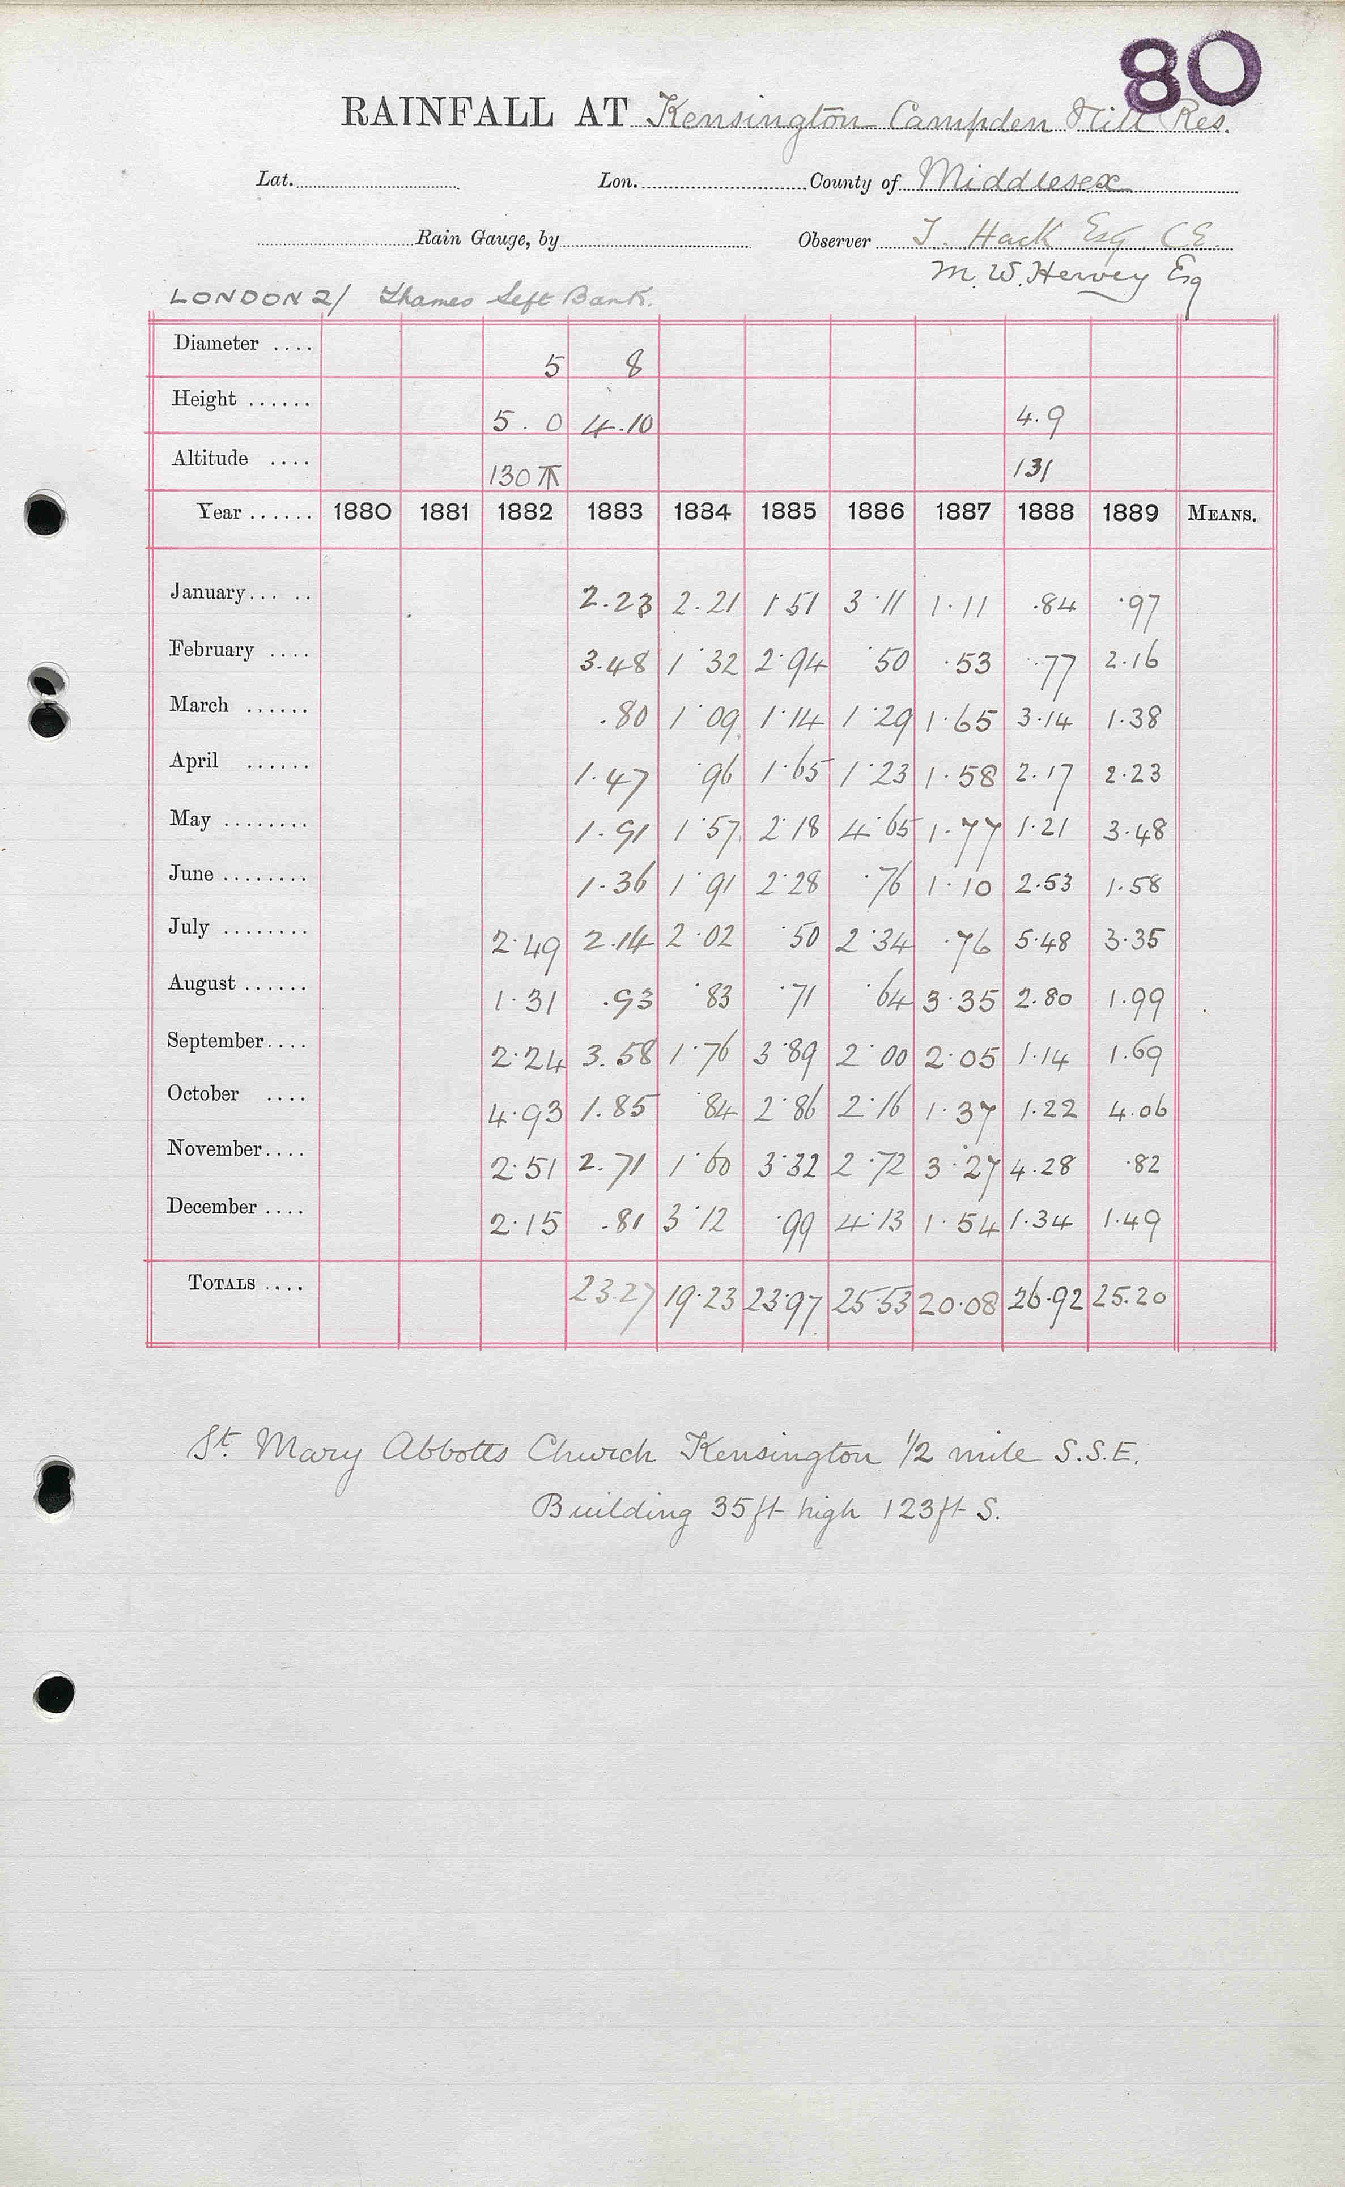 80
RAINFALL AT Kensington Campden Hill Res.
Lat. Lon. County of Middlesex
Rain Gauge, by Observer T. Hack Esq CE
M. W. Hervey Esq
LONDON 2/ Thames Left Bank.
Diameter .... 5 8
Height ...... 5.0 4.10 4.9
Altitude .... 130 131
Year ...... 1880 1881 1882 1883 1884 1885 1886 1887 1888 1889 MEANS.
January... .. 2.23 2.21 1.51 3.11 1.11 .84 .97
February .... 3.48 1.32 2.94 .50 .53 .77 2.16
March ...... .80 1.09 1.14 1.29 1.65 3.14 1.38
April ...... 1.47 .96 1.65 1.23 1.58 2.17 2.23
May ........ 1.91 1.57 2.18 4.65 1.77 1.21 3.48
June ........ 1.36 1.91 2.28 .76 1.10 2.53 1.58
July ........ 2.49 2.14 2.02 .50 2.34 .76 5.48 3.35
August ...... 1.31 .93 .83 .71 .64 3.35 2.80 1.99
September.... 2.24 3.58 1.76 3.89 2.00 2.05 1.14 1.69
October .... 4.93 1.85 .84 2.86 2.16 1.37 1.22 4.06
November.... 2.51 2.71 1.60 3.32 2.72 3.27 4.28 .82
December .... 2.15 .81 3.12 .99 4.13 1.54 1.34 1.49
TOTALS .... 23.27 19.23 23.97 25.53 20.08 26.92 25.20
St. Mary Abbotts Church Kensington 1/2 mile S.S.E.
Building 35ft high 123ft S.